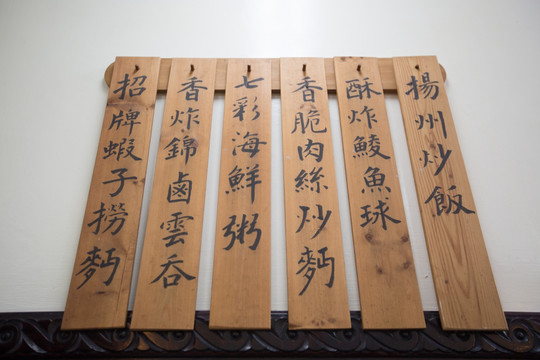 揚州炒飯
酥炸鯪魚球
香脆肉絲炒麪
七彩海鮮粥
香炸錦鹵雲吞
招牌蝦子撈麪